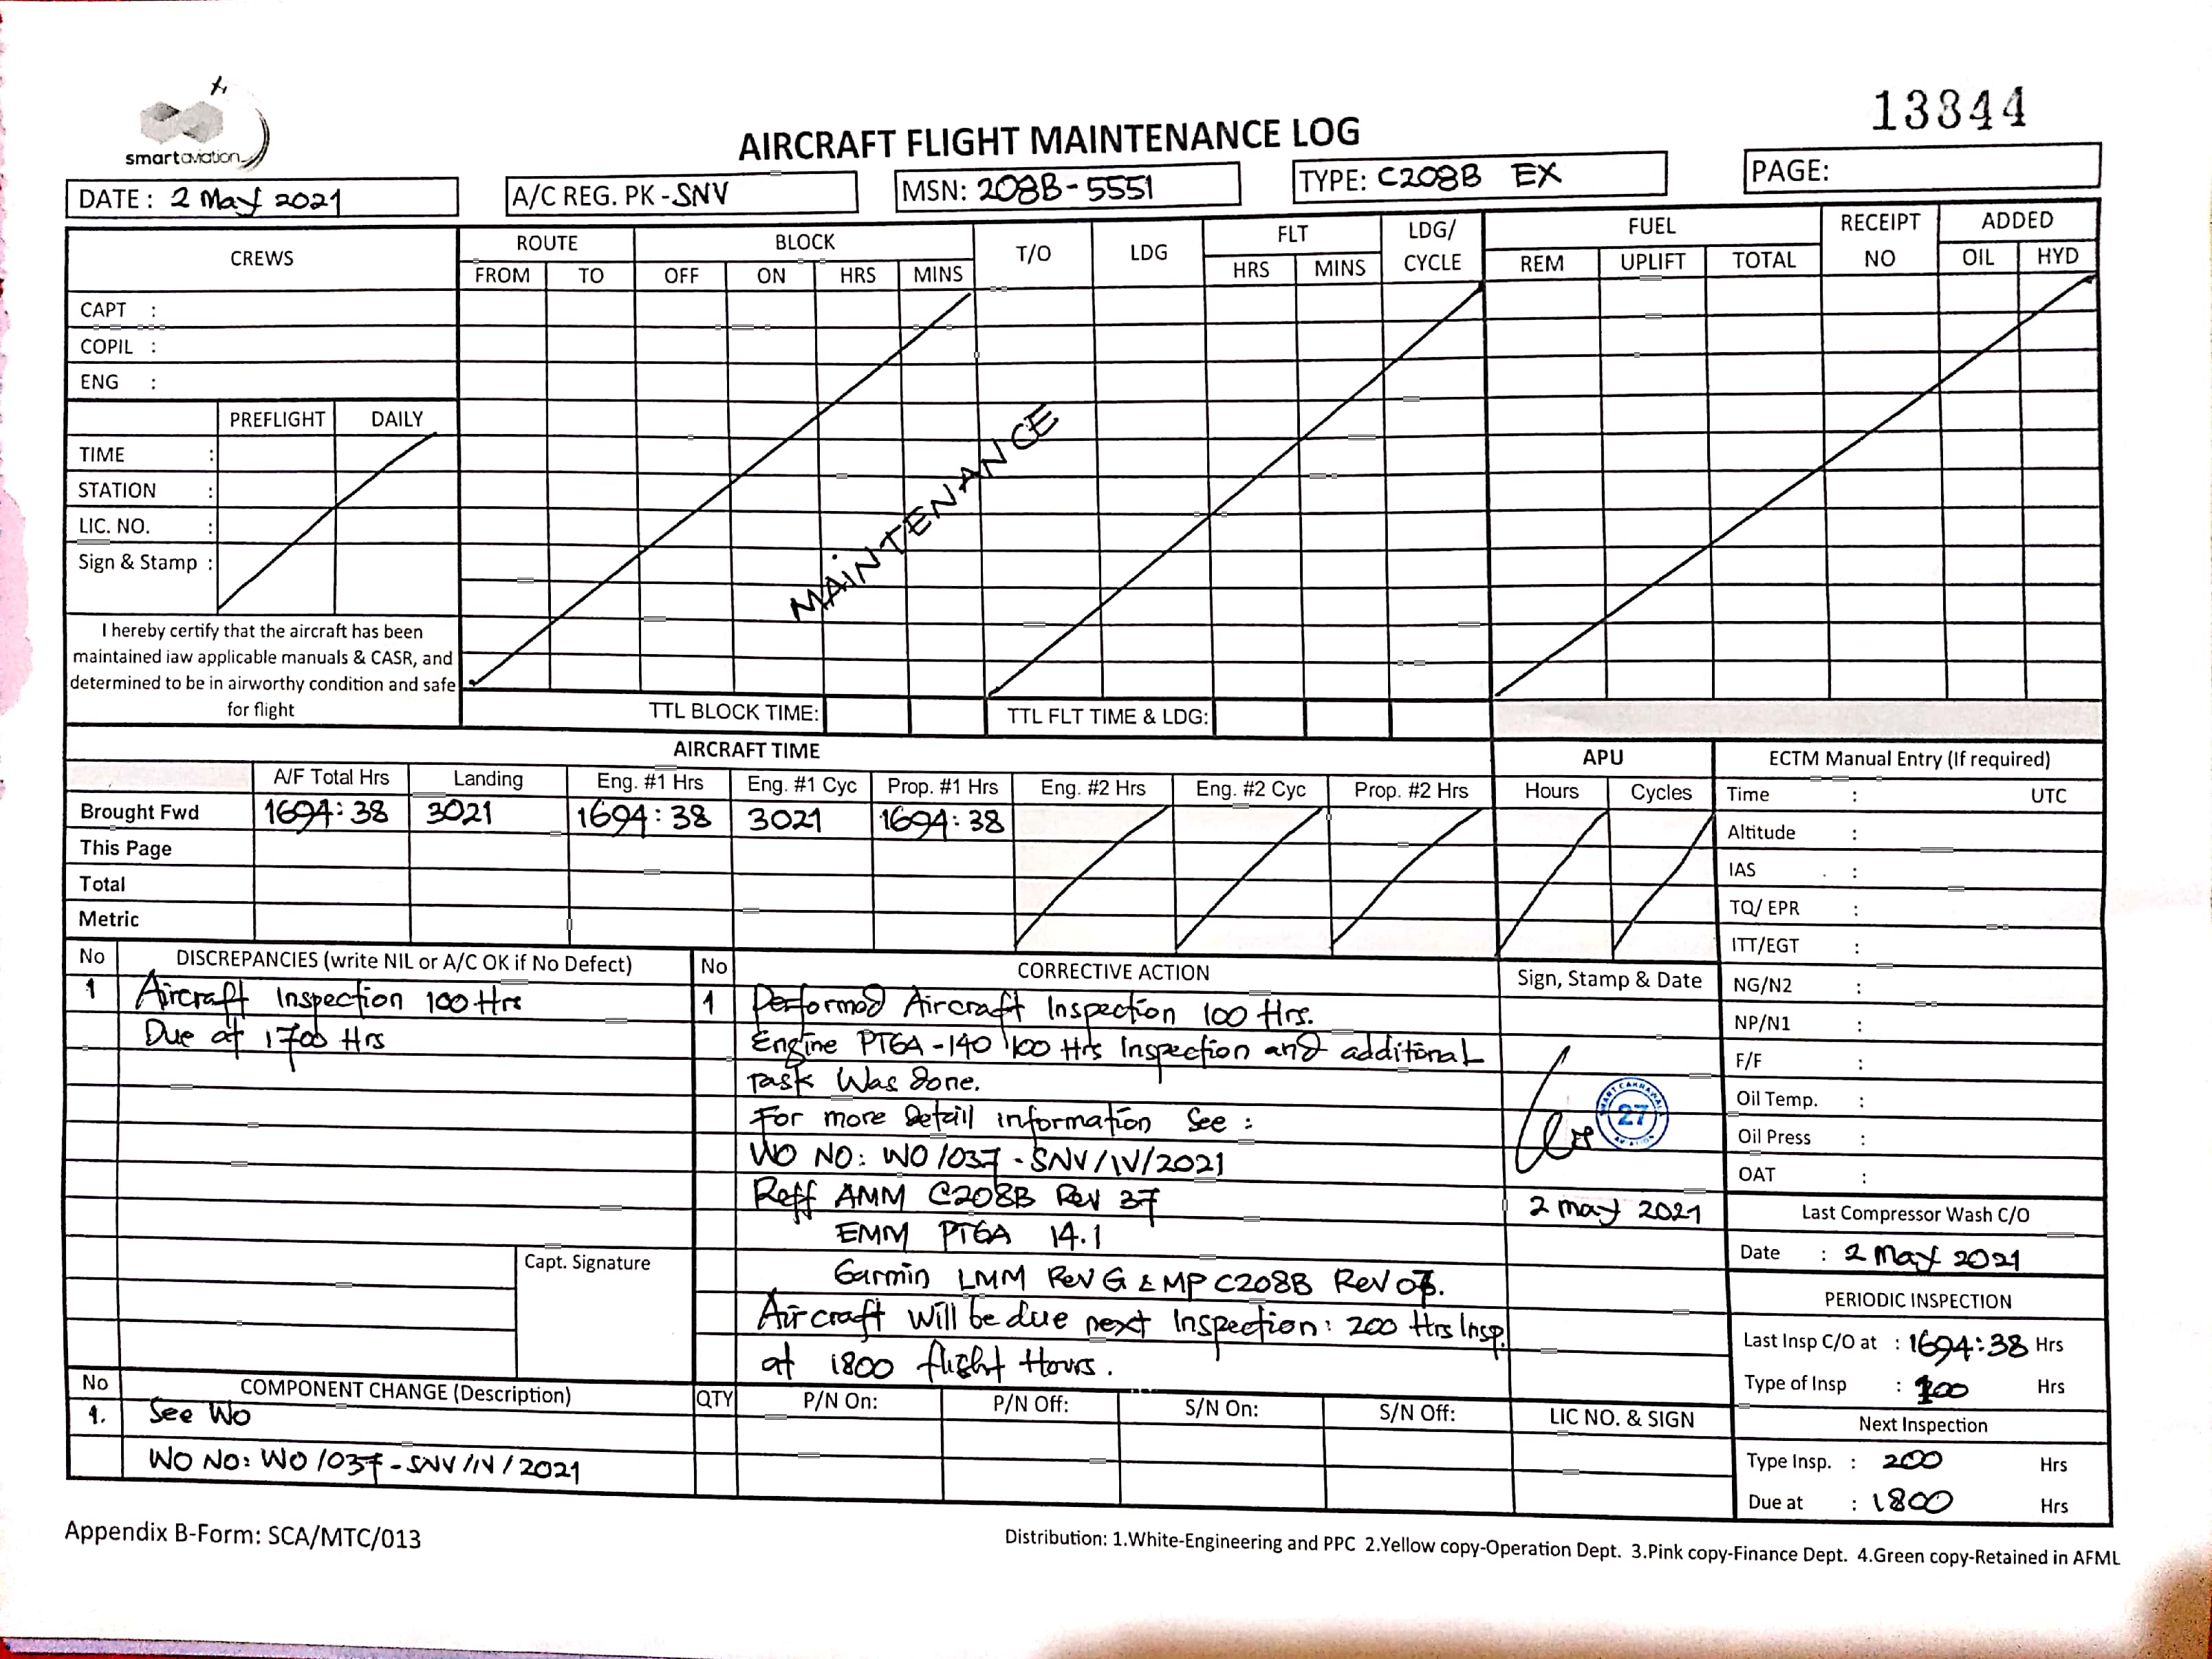 smartaviation
13844
AIRCRAFT FLIGHT MAINTENANCE LOG
DATE : 2 May 2021
A/C REG. PK -SNV
MSN: 208B-5551
TYPE: C208B EX
PAGE:
CREWS ROUTE BLOCK T/O LDG FLT LDG/ CYCLE FUEL RECEIPT NO ADDED
FROM TO OFF ON HRS MINS HRS MINS REM UPLIFT TOTAL OIL HYD
CAPT :
COPIL :
ENG :
PREFLIGHT DAILY
TIME :
STATION :
LIC. NO. :
Sign & Stamp :
MAINTENANCE
I hereby certify that the aircraft has been
maintained iaw applicable manuals & CASR, and
determined to be in airworthy condition and safe
for flight
TTL BLOCK TIME: TTL FLT TIME & LDG:
AIRCRAFT TIME APU ECTM Manual Entry (If required)
A/F Total Hrs Landing Eng. #1 Hrs Eng. #1 Cyc Prop. #1 Hrs Eng. #2 Hrs Eng. #2 Cyc Prop. #2 Hrs Hours Cycles
Brought Fwd 1694:38 3021 1694:38 3021 1694:38
This Page
Total
Metric
Time : UTC
Altitude :
IAS :
TQ/ EPR :
ITT/EGT :
NG/N2 :
NP/N1 :
F/F :
Oil Temp. :
Oil Press :
OAT :
No DISCREPANCIES (write NIL or A/C OK if No Defect)
1 Aircraft Inspection 100 Hrs
Due at 1700 Hrs
Capt. Signature
No CORRECTIVE ACTION Sign, Stamp & Date
1 Performed Aircraft Inspection 100 Hrs.
Engine PT6A-140 100 Hrs Inspection and additional
Task Was done.
For more Detail information See :
WO NO: WO/037-SNV/IV/2021
Reff AMM C208B Rev 37
EMM PT6A 14.1
Garmin LMM Rev G & MP C208B Rev
Aircraft will be due next Inspection: 200 Hrs Insp.
at 1800 flight Hours.
27
2 may 2021
Last Compressor Wash C/O
Date : 2 May 2021
PERIODIC INSPECTION
Last Insp C/O at : 1694:38 Hrs
Type of Insp : 100 Hrs
Next Inspection
Type Insp. : 200 Hrs
Due at : 1800 Hrs
No COMPONENT CHANGE (Description) QTY P/N On: P/N Off: S/N On: S/N Off: LIC NO. & SIGN
1. See Wo
WO NO: WO/037-SNV/IV/2021
Appendix B-Form: SCA/MTC/013
Distribution: 1.White-Engineering and PPC 2.Yellow copy-Operation Dept. 3.Pink copy-Finance Dept. 4.Green copy-Retained in AFML